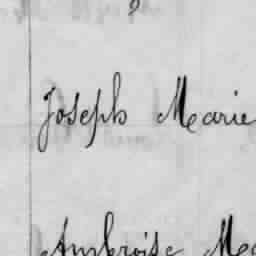 Joseph Marie
Ambroise Ma